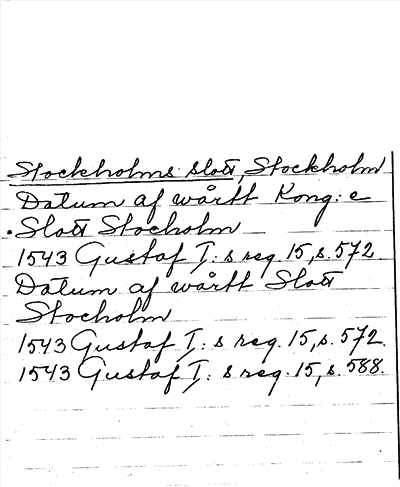 Stockholms slott, Stockholm
Datum af wårtt Kong: e
. Slott Stocholm
1543 Gustaf I: s reg. 15, s. 572.
Datum af wårtt Slott
Stocholm
1543 Gustaf I: s reg. 15, s. 572.
1543 Gustaf I: s reg. 15, s. 588.